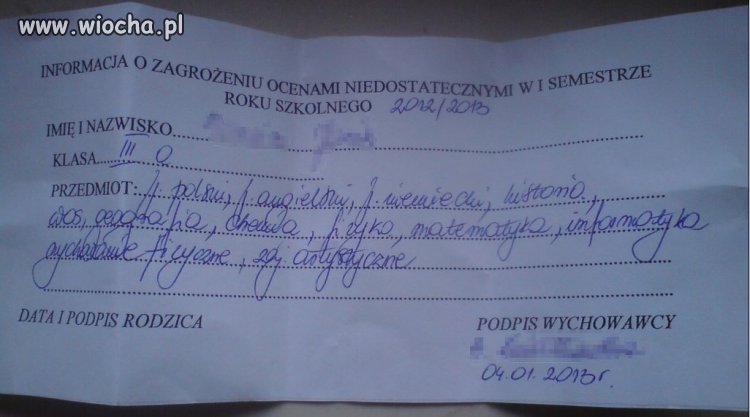 www.wiocha.pl
INFORMACJA O ZAGROŻENIU OCENAMI NIEDOSTATECZNYMI W I SEMESTRZE
ROKU SZKOLNEGO 2012/2013
IMIĘ I NAZWISKO
KLASA III
PRZEDMIOT: j. polski, j. angielski, j. niemiecki, historia,
wos, geografia, chemia, fizyka, matematyka, informatyka
wychowanie fizyczne, zaj. artystyczne
DATA I PODPIS RODZICA
PODPIS WYCHOWAWCY
04.01.2013r.